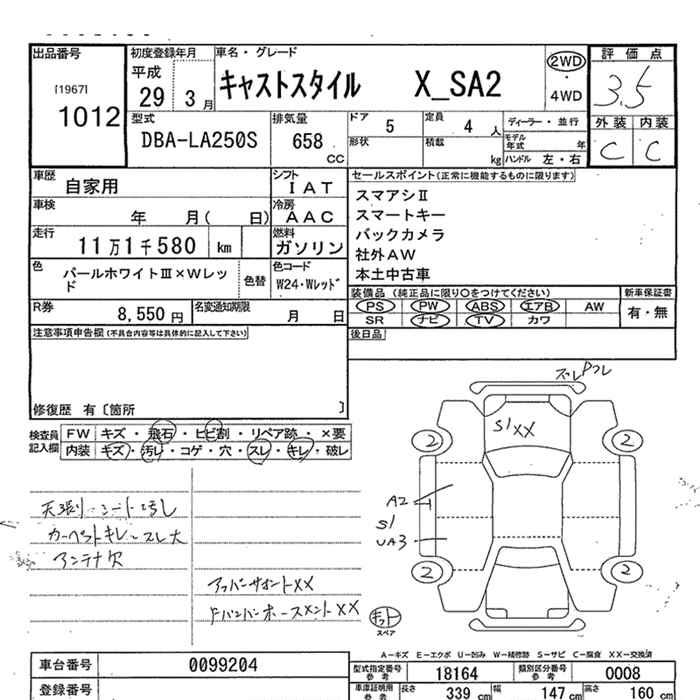 出品番号 初度登録年月 車名・グレード 評価点
[1967] 平成 2WD
1012 29 3月 キャストスタイル X_SA2 ・ 4WD 3.5
型式 排気量 ドア 5 定員 4 人 ディーラー・並行 外装 内装
DBA-LA250S 658 CC 形状 積載 kg モデル年式 年 ハンドル 左・右 C C
車歴 自家用 シフト IAT セールスポイント(正常に機能するものに限ります)
車検 年 月( 日) 冷房 AAC スマアシⅡ
スマートキー
走行 11万1千580 km 燃料 ガソリン バックカメラ
社外AW
色 パールホワイトⅢ×Wレッド 色替 色コード W24・Wレッド 本土中古車
装備品(純正品に限り○をつけてください) 新車保証書
R券 8,550円 名変通知期限 月 日 PS PW ABS エアB AW 有・無
SR ナビ TV カワ
注意事項申告欄(不具合内容等は具体的に記入して下さい) 後日品
修復歴 有〔箇所 〕
検査員記入欄 FW キズ・飛石・ヒビ割・リペア跡・×要
内装 キズ・汚レ・コゲ・穴・スレ・キレ・破レ
スレ
S1 XX
2 2
A2
S1
UA3
2 2
天張リ シート汚し
カーペットキレ スレ大
アンテナ欠
アッパーサポートXX
スペア
A-キズ E-エクボ U-凹み W-補修跡 S-サビ C-腐食 XX-交換済
車台番号 0099204 型式指定番号 参考 18164 類別区分番号 参考 0008
登録番号 車庫証明用 参考 長さ 339 cm 幅 147 cm 高さ 160 cm